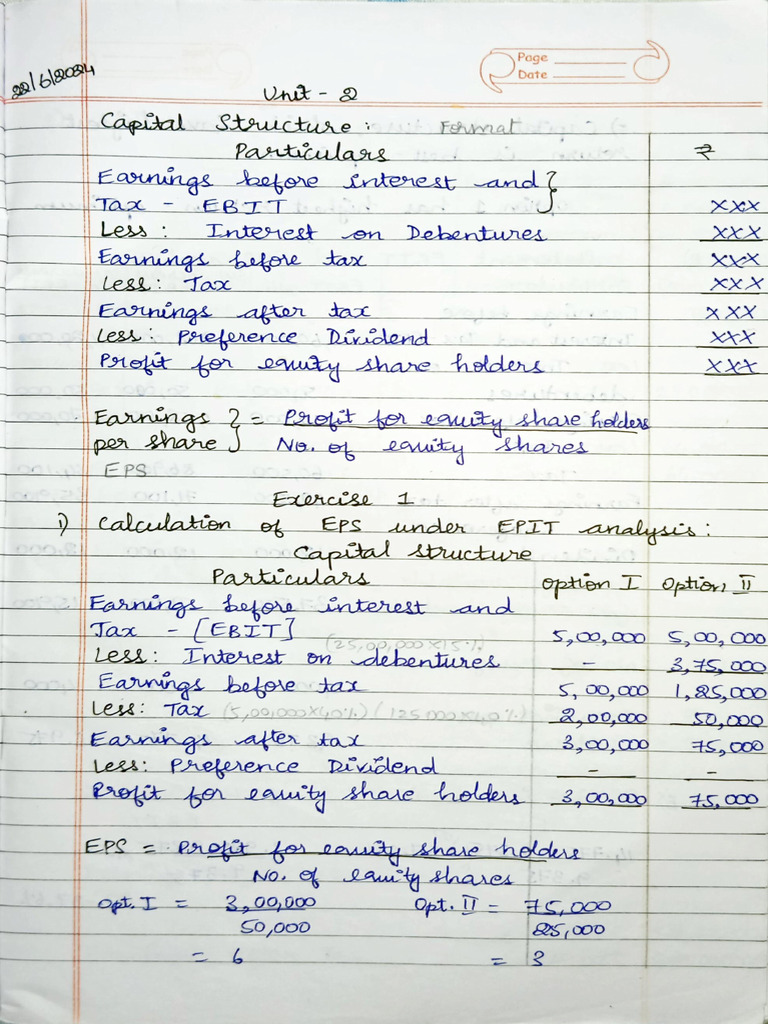 Page
22/6/2024
Date
Unit - 2
Capital Structure : Format
Particulars ₹
Earnings before interest and }
Tax - EBIT xxx
Less : Interest on Debentures xxx
Earnings before tax xxx
Less : Tax xxx
Earnings after tax xxx
Less : Preference Dividend xxx
Profit for equity share holders xxx
Earnings } = Profit for equity share holders
per share } No. of equity shares
EPS
Exercise 1
1) Calculation of EPS under EPIT analysis :
Capital structure
Particulars Option I Option II
Earnings before interest and
Tax - [EBIT] 5,00,000 5,00,000
(25,00,000 x 15%)
Less : Interest on debentures - 3,75,000
Earnings before tax 5,00,000 1,25,000
Less : Tax (5,00,000x40%) (125000x40%) 2,00,000 50,000
Earnings after tax 3,00,000 75,000
Less : Preference Dividend - -
Profit for equity share holders 3,00,000 75,000
EPS = Profit for equity share holders
No. of equity shares
Opt. I = 3,00,000 Opt. II = 75,000
50,000 25,000
= 6 = 3